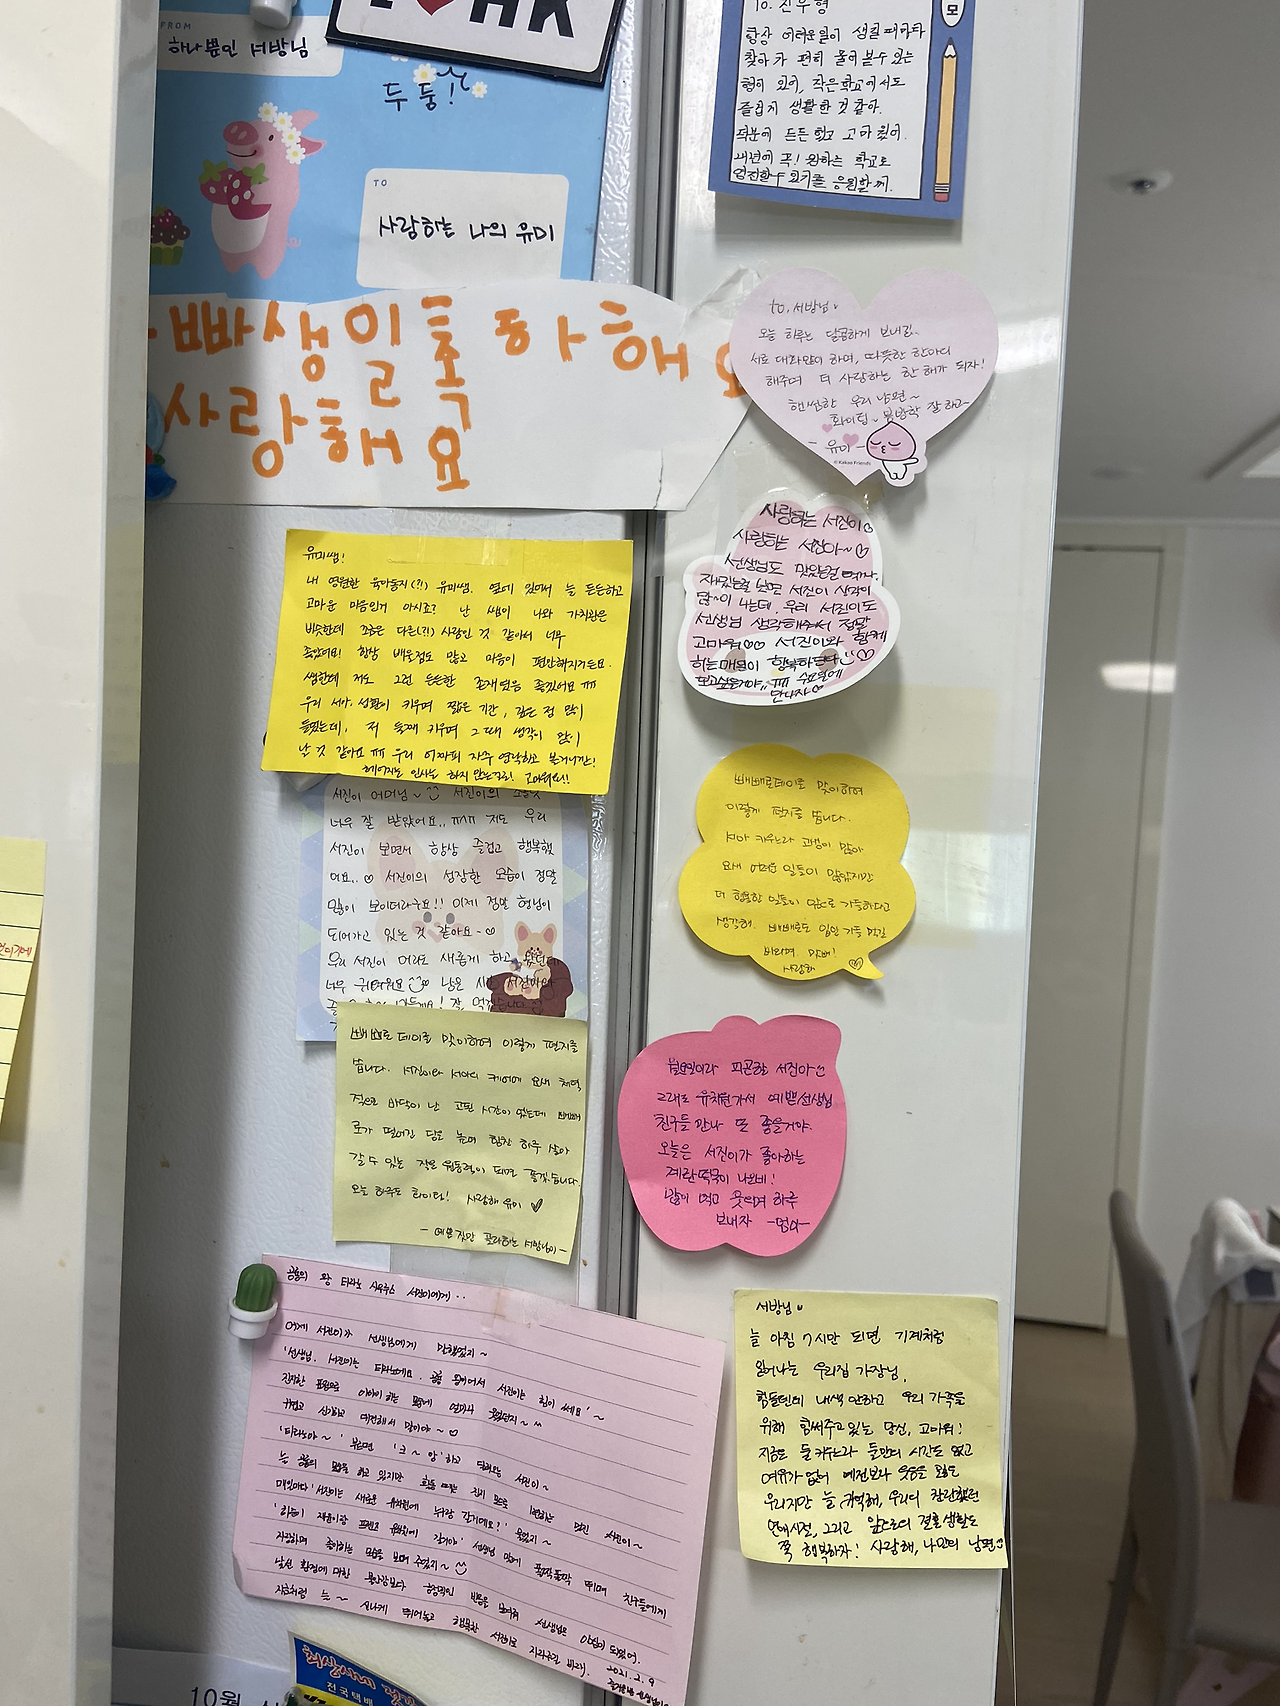 I ♥ HK
FROM
하나뿐인 서방님
두둥!
TO
사랑하는 나의 유미
빠생일축하해요
사랑해요
To. 진우형
항상 어려운일이 생길때마다
찾아가 편히 물어볼수 있는
형이 있어, 작은학교에서도
즐겁게 생활한 것 같아.
덕분에 든든했고 고마웠어.
내년에 꼭! 원하는 학교로
응원할게.
to. 서방님
오늘 하루는 달콤하게 보내길.
서로 대화많이 하며, 따뜻한 한마디
해주며 더 사랑하는 한 해가 되자!
핸썸한 우리 남편~
화이팅 봄방학 잘 하고~
- 유미 -
© Kakao Friends
사랑하는 서진이♡
사랑하는 서진아~♡
선생님도
서진이 생각이
나는데, 우리 서진이도
선생님 생각해주어서 정말
고마워♡♡ 서진이와 함께
하는 매일이 행복하단다
보고싶을거야.. ㅠㅠ 수요일에
만나자♡
유미쌤!
내 영원한 육아동지(?!) 유미쌤. 옆에 있어서 늘 든든하고
고마운 마음인거 아시죠? 난 쌤이 나와 가치관은
비슷한데 조금은 다른(?!) 사람인 것 같아서 너무
좋았어요! 항상 배울점도 많고 마음이 편안해지거든요.
쌤한테 저도 그런 든든한 존재였음 좋겠어요 ㅠㅠ
우리 키우며 짧은 기간, 깊은 정 많이
들었는데, 저 둘째 키우며 그때 생각이 많이
날 것 같아요 ㅠㅠ 우리 어차피 자주 연락하고 볼거니깐!
헤어지는 인사는 하지 않는걸로! 고마워요!!
서진이 어머님 서진이의
너무 잘 받았어요.. ㅠㅠㅠ 저도 우리
서진이 보면서 항상 즐겁고 행복했
어요..♡ 서진이의 성장한 모습이 정말
많이 보이더라구요!! 이제 정말 형님이
되어가고 있는 것 같아요~♡
우리 서진이 머리도 새롭게 하고 왔던데
너무 귀여워요 남은 서진이와
잘 먹겠습니다
빼빼로데이를 맞이하여
이렇게 편지를 씁니다.
서아 키우느라 고생이 많아
요새 어려운 일들이 많았지만
더 행복한 일들이 앞으로 가득하다고
생각해. 빼빼로도 입안 가득 먹길
바라며 이만!
사랑해
빼빼로데이를 맞이하여 이렇게 편지를
씁니다. 서진이와 서아의 케어에 요새 체력
적으로 바닥이 난 고된 시간이 있는데 빼빼
로가 떨어진 당을 높여 힘찬 하루 살아
갈 수 있는 작은 원동력이 되면 좋겠습니다.
오늘 하루도 화이팅! 사랑해 유미 ✓
- 예쁜것만 골라하는 서방님이 -
월요일이라 피곤한 서진아
그래도 유치원가서 예쁜선생님
친구들 만나 또 좋을거야.
오늘은 서진이가 좋아하는
계란떡국이 나오네!
많이 먹고 웃으며 하루
보내자 -엄마-
서방님
늘 아침 7시만 되면 기계처럼
일어나는 우리집 가장님.
힘들텐데 내색 안하고 우리 가족을
위해 힘써주고있는 당신, 고마워!
지금은 둘 키우느라 둘만의 시간도 없고
여유가 없어 예전보다 웃음을 잃은
우리지만 늘 기억해, 우리의 찬란했던
연애시절, 그리고 앞으로의 결혼생활도
쭉 행복하자! 사랑해, 나만의 남편
공룡의 왕 티라노 사우루스 서진이에게..
어제 서진이가 선생님에게 말했었지~
'선생님. 서진이는 티라노예요. 공룡 서진이는 힘이 쎄요'~
진지한 표정으로 이야기 하는 얼마나
귀엽고 신기하고 대견해서 말이야~♡
'티라노야~' 부르면 '크~앙'하고 달려오는 서진이~
는 공룡의 모습을 하고 있지만 멋진 서진이~
매일마다 '서진이는 새로운 유치원에 누구랑 갈거예요?' 묻었지~
선생님 앞에 폴짝폴짝 뛰며 친구들에게
자랑하며 좋아하는 모습을 보며 주었지~
낯선 환경에 대한 불안감보다 긍정적인 반응을 보여줘 선생님은 안심이 되었어.
지금처럼 늘~ 신나게 뛰어놀고 행복한 서진이로 자라주길 바래.
2021. 2. 9
전국택배
10월